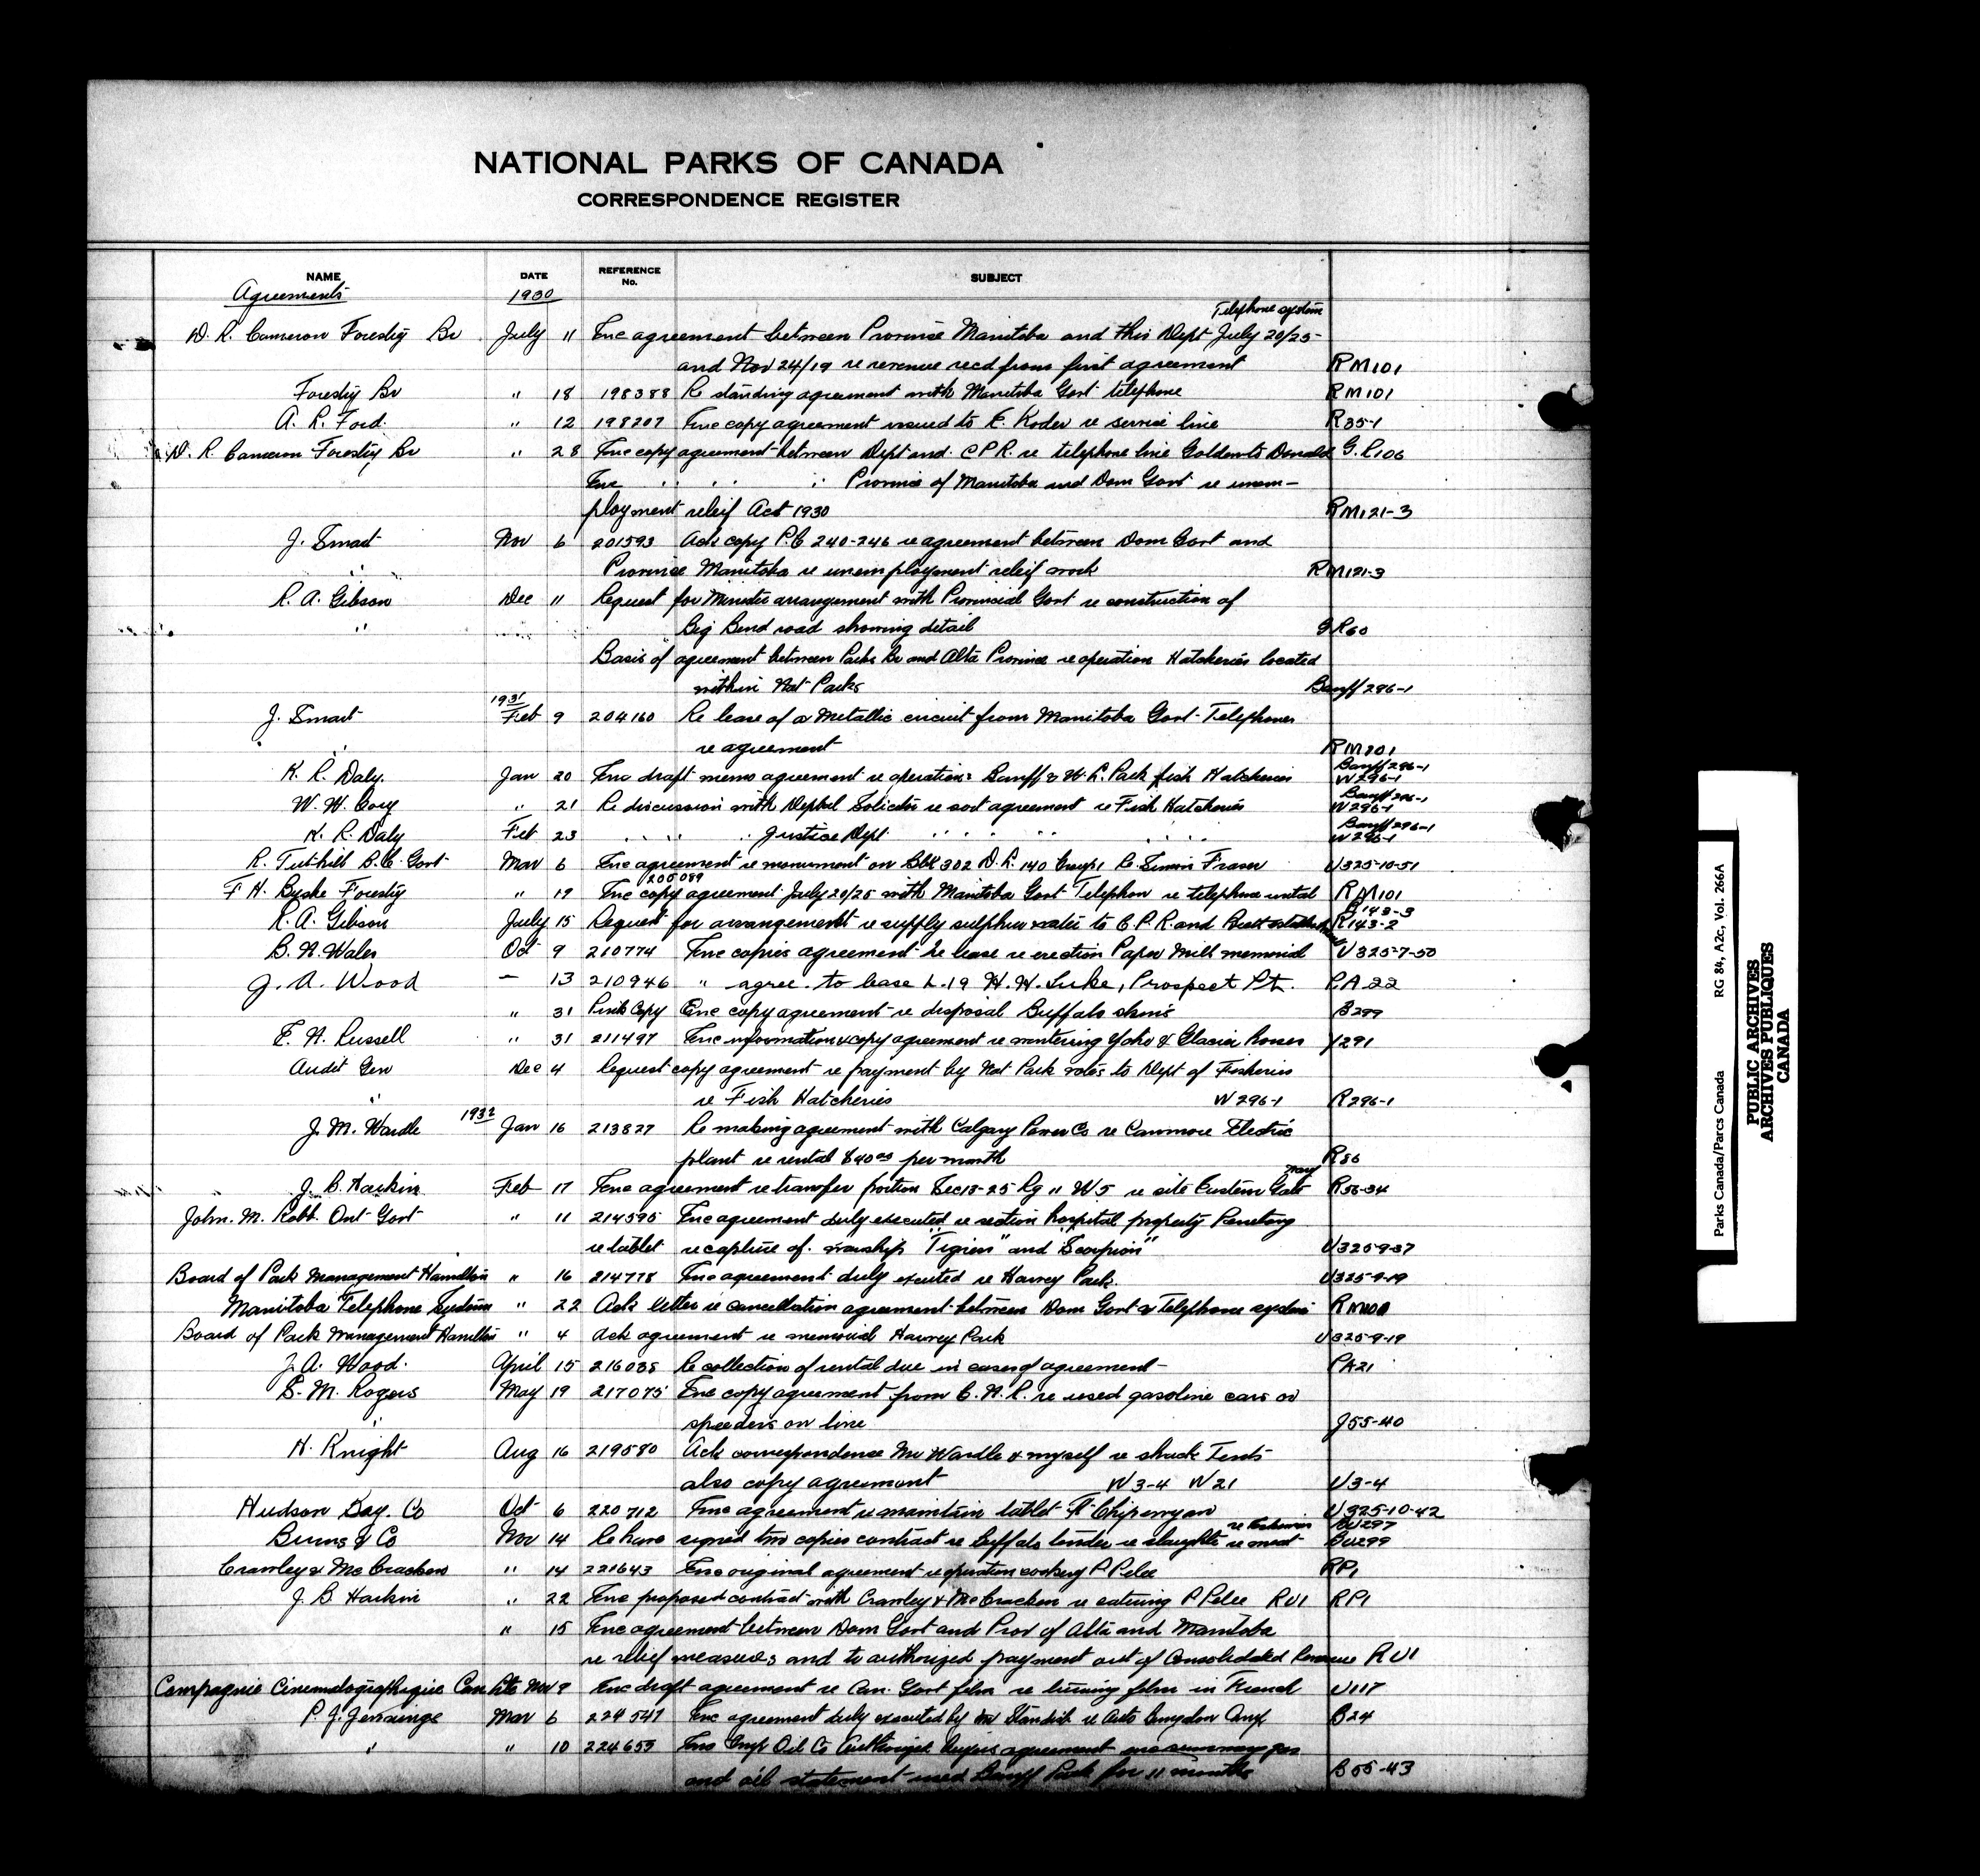 NATIONAL PARKS OF CANADA
CORRESPONDENCE REGISTER
NAME DATE REFERENCE No. SUBJECT
Agreements 1930
Telephone system
D. R. Cameron Forestry Br July 11 Enc agreement between Province Manitoba and this Dept July 20/25
and Nov 24/19 re revenue recd from first agreement RM101
Forestry Br " 18 198388 Re standing agreement with Manitoba Govt telephone RM101
A. R. Ford. " 12 198207 Enc copy agreement issued to E. Koder re service line R35-1
D. R. Cameron Forestry Br " 28 Enc copy agreement between Dept and C P R. re telephone line Golden to Donald G.R106
Enc " " " Province of Manitoba and Dom Govt re unem-
ployment releif Act 1930 RM121-3
J. Smart Nov 6 201593 Ack copy P.C 240-246 re agreement between Dom Govt and
" Province Manitoba re unemployment releif work RM121-3
R. A. Gibson Dec 11 Request for Minister arrangement with Provincial Govt re construction of
" Big Bend road showing detail GR60
Basis of agreement between Parks Br and Alta Province re operation Hatcheries located
within Nat Parks Banff 296-1
1931
J. Smart Feb 9 204160 Re lease of a Metallic circuit from Manitoba Govt Telephones
" re agreement RM201
K. R. Daly. Jan 20 Enc draft memo agreement re operation Banff & W. L. Park fish Hatcheries Banff 296-1 W296-1
W. W. Cory " 21 Re discussion with Deptal Solicitor re sort agreement re Fish Hatcheries Banff 296-1 W296-1
K. R. Daly Feb 23 " " " Justice Dept " " " " " " Banff 296-1 W296-1
R. Tuthill B.C. Govt Mar 6 Enc agreement re monument on Blk 302 D. L. 140 Group 1 Re Simon Fraser U325-10-51
205089
F H. Byshe Forestry " 19 Enc copy agreement July 20/25 with Manitoba Govt Telephon re telephone rental RM101
R. A. Gibson July 15 Request for arrangements re supply sulphur water to C.P.R. and Brett B143-3 R143-2
B. N. Wales Oct 9 210774 Enc copies agreement re lease re erection Paper Mill memorial U325-7-50
J. A. Wood — 13 210946 " agree. to lease L-19 H. H. Luke, Prospect Pt. P.A 22
" 31 Pink Copy Enc copy agreement re disposal Buffalo skins B299
E. A. Russell " 31 211497 Enc information & copy agreement re wintering Yoho & Glacier horses Y291
Audit Gen Dec 4 Request copy agreement re payment by Nat Park votes to Dept of Fisheries
" re Fish Hatcheries W296-1 R296-1
1932
J. M. Wardle Jan 16 213827 Re making agreement with Calgary Power Co re Canmore Electric
plant re rental $40.00 per month R36
J. B. Harkin Feb 17 Enc agreement re transfer portion Sec 18-25 Rg 11 W5 re site Eastern Gate R56-34
John. M. Robb. Ont Govt " 11 214595 Enc agreement duly executed re section hospital property Penetang
re tablet re capture of. warship "Tigress" and "Scorpion" U325-9-37
Board of Park Management Hamilton " 16 214778 Enc agreement duly excuted re Harvey Park. U325-9-19
Manitoba Telephone System " 22 Ack letter re cancellation agreement between Dom Govt & Telephone system RM101
Board of Park Management Hamilton " 4 Ack agreement re memorial Harvey Park U325-9-19
J. A. Wood. April 15 216035 Re collection of rental due in cases of agreement PA21
S. M. Rogers May 19 217075 Enc copy agreement from C. N. R. re used gasoline cars or
" speeders on line J55-40
H. Knight Aug 16 219580 Ack correspondence Mr Wardle & myself re shack Tents
also copy agreement W3-4 W21 U3-4
Hudson Bay. Co Oct 6 220712 Enc agreement re maintain tablet Ft Chipewyan U325-10-42
Burns & Co Nov 14 Re have signed two copies contract re Buffalo tender re slaughter re meat BU297 BU299
Crawley & McCracken " 14 221643 Enc original agreement re operation P Pelee RP1
J. B. Harkin " 22 Enc proposed contract with Crawley & McCracken re catering P Pelee RU1 RP1
" 15 Enc agreement between Dom Govt and Prov of Alta and Manitoba
re relief measures and to authorized payment out of Consolidated Revenue RU1
Compagnie Cinematographique Can Mar 9 Enc draft agreement re Can. Govt film re turning film in French U117
P. J. Jennings Mar 6 224547 Enc agreement duly executed by Mr Standish re Auto Bungalow Camp B24
" " 10 224653 Enc Impr Oil Co agreement
and oil statement used Banff Park for 11 months B55-43
Parks Canada/Parcs Canada RG 84, A2c, Vol. 266A
PUBLIC ARCHIVES
ARCHIVES PUBLIQUES
CANADA